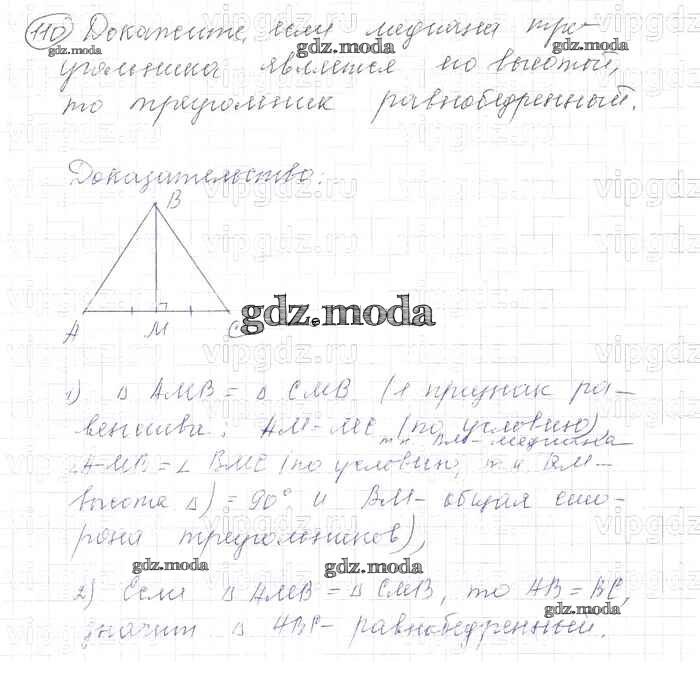 110 Докажите, если медиана тре-
угольника является его высотой,
то треугольник равнобедренный.
Доказательство:
B
A M C
gdz.moda
1) △ AMB = △ CMB (1 признак ра-
венства: AM = MC (по условию,
т.к. BM - медиана
∠AMB = ∠ BMC (по условию, т.к. BM-
высота △) = 90° и BM - общая сто-
рона треугольников),
2) Если △ AMB = △ CMB, то AB = BC,
значит △ ABC - равнобедренный.